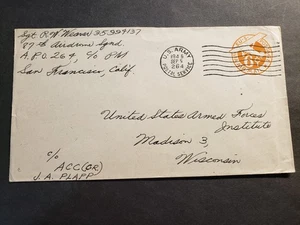 Sgt R W Weaver 35399137
87th Airdrome Sqrd
A.P.O 264, c/o PM
San Francisco, Calif.
U.S. ARMY
SEP 5
264
POSTAL SERVICE
United States Armed Forces
Institute
Madison 3,
Wisconsin
c/o
ACC(OR)
J.A. PLAPP